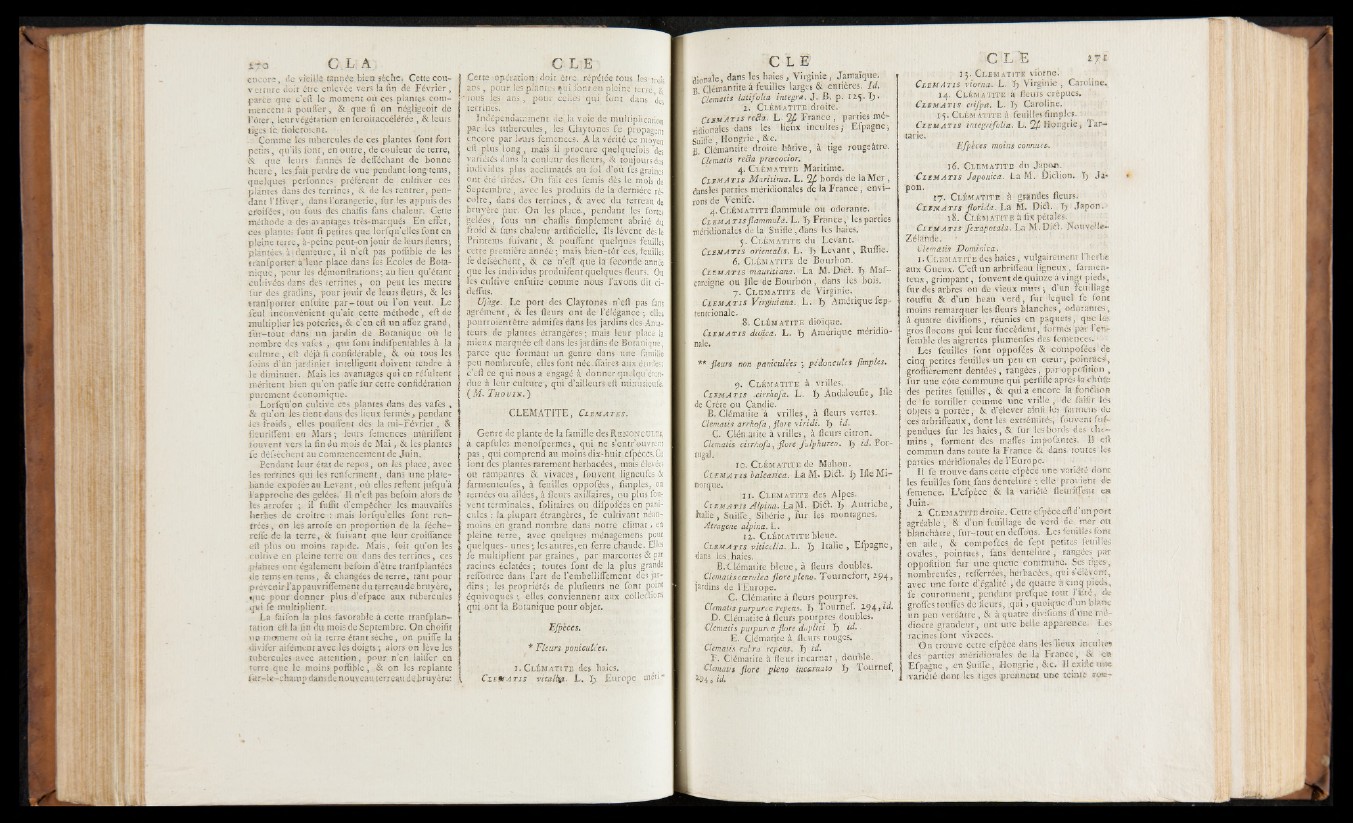 270 C L A
encore, de vieille tannée bien sèche. Cette cou-
verture doit être enlevée vers la fin de Février,
parce que c'est le moment où ces plantes com-
mencent à pousser, & que si on négligeoit de
l'ôter, leur végétation en seroit accélérée, & leurs
tiges se fioleroient.
Comme les tubercules de ces plantes sont fort
petits, qu'ils sont, en outre, de couleur de terre,
& que leurs fannes se dessèchent de bonne
heure, les fait perdre de vue pendant long-tems,
quelques personnes préfèrent de cultiver ces
plantes dans des terrines, & de les rentrer, pen-
dant l'Hiver, dans l'orangerie, sur les appuis des
croisées, ou sous des chassis sans chaleur. Cette
méthode a des avantages très-marqués. En effet,
ces plantes sont si petites que lorsqu'elles sont en
pleine terre, à-peine peut-on jouir de leurs fleurs;
plantées à demeure, il n'est pas possible de les
transporter à leur place dans les Ecoles de Bota-
nique, pour les démonstrations; au lieu qu'étant
cultivées dans des terrines, on peut les mettre
sur des gradins, pour jouir de leurs fleurs, & les
transporter ensuite par-tout où l'on veut. Le
seul inconvénient qu'ait cette méthode, est de
multiplier les poteries, & c'en est un assez grand,
sur-tout dans un jardin de Botanique où le
nombre des vases, qui sont indispensables à la
culture, est déjà si considérable, & où tous les
soins d'un jardinier intelligent doivent tendre à
le diminuer. Mais les avantages qui en résultent
méritent bien qu'on passe sur cette considération
purement économique.
Lorsqu'on cultive ces plantes dans des vases,
& qu'on les tient dans des lieux fermés, pendant
les froids, elles poussent dès la mi-Février, &
fleurissent en Mars; leurs semences mûrissent
souvent vers la fin du mois de Mai, & les plantes
se dessèchent au commencement de Juin.
Pendant leur état de repos, on les place, avec
les terrines qui les renferment, dans une plate-
bande exposée au Levant, où elles restent jusqu'à
l'approche des gelées. Il n'est pas besoin alors de
les arroser; il suffit d'empêcher les mauvaises
herbes de croître: mais lorsqu'elles sont ren-
trées, on les arrose en proportion de la séche-
resse de la terre, & suivant que leur croissance
est plus ou moins rapide. Mais, soit qu'on les
cultive en pleine terre ou dans des terrines, ces
plantes ont également besoin d'être transplantées
de tems en tems, & changées de terre, tant pour
prévenir l'appauvrissement du terreau de bruyère,
que pour donner plus d'espace aux tubercules
qui se multiplient.
La saison la plus favorable à cette transplan-
tation est la fin du mois de Septembre. On choisit
un moment où la terre étant sèche, on puisse la
diviser aisément avec les doigts; alors on lève les
tubercules avec attention, pour n'en laisser en
terre que le moins possible, & on les replante
sur-le-champ dans de nouveau terreau de bruyère.
C L E
Cette opération doit être répétée tous les trois
ans, pour les plantes qui sont en pleine terre, &
tous les ans, pour celles qui sont dans des
terrines.
Indépendamment de la voie de multiplication
par les tubercules, les Claytones se propagent
encore par leurs semences. A la vérité ce moyen
est plus long, mais il procure quelquefois des
variétés dans la couleur des fleurs, & toujours des
individus plus acclimatés au sol d'où les graines
ont été tirées. On fait ces semis dès le mois de
Septembre, avec les produits de la dernière ré-
colte, dans des terrines, & avec du terreau de
bruyère pur. On les place, pendant les fortes
gelées, sous un chassis simplement abrité du
froid & sans chaleur artificielle. Ils lèvent dès le
Printems suivant, & poussent quelques feuilles
cette première année; mais bien-tôt ces feuilles
se dessèchent, & ce n'est que la seconde année
que les individus produisent quelques fleurs. On
les cultive ensuite comme nous l'avons dit ci-
dessus.
Usage. Le port des Claytones n'est pas sans
agrément, & les fleurs ont de l'élégance; elles
pourroient être admises dans les jardins des Ama-
teurs de plantes étrangères; mais leur place la
mieux marquée est dans les jardins de Botanique,
parce que formant un genre dans une famille
peu nombreuse, elles sont nécessaires aux études:
c'est ce qui nous a engagé à donner quelqu'éten-
due à leur culture, qui d'ailleurs est minutieuse.
(M. THOUIN.)
CLEMATITE, CLEMATIS.
Genre de plante de la famille des RENONCULES,
à capsules monospermes, qui ne s'entr'ouvrent
pas, qui comprend au moins dix-huit espèces. Ce
sont des plantes rarement herbacées, mais élevées
ou rampantes & vivaces, souvent ligneuses &
sarmenteuses, à feuilles opposées, simples, ou
ternées ou ailées, à fleurs axillaires, ou plus sou-
vent terminales, solitaires ou disposées en pani-
cules: la plupart étrangères, se cultivant néan-
moins en grand nombre dans notre climat, en
pleine terre, avec quelques ménagemens pour
quelques-unes; les autres, en serre chaude. Elles
se multiplient par graines, par marcottes & par
racines éclatées; toutes sont de la plus grande
ressource dans l'art de l'embellissement des jar-
dins; les propriétés de plusieurs ne sont point
équivoques; elles conviennent aux collections
qui ont la Botanique pour objet.
Espèces.
* Fleurs paniculées.
1. CLÉMATITE des haies.
CLEMATIS vitalba. L. ♄ Europe méri-
C L E
dionale, dans les haies, Virginie, Jamaïque.
B. Clémantite à feuilles larges & entières. Id.
Clematis latifolia integra. J. B. p. 125. ♄.
2. CLÉMATITE droite.
CLEMATIS recta. L. ♃ France, parties mé-
ridionales dans les lieux incultes; Espagne,
Suisse, Hongrie, &c.
B. Clémantite droite hâtive, à tige rougeâtre.
Clematis recta præcocior.
4. CLÉMATITE Maritime.
CLEMATIS Maritima. L. ♃ bords de la Mer,
dans les parties méridionales de la France, envi-
rons de Venise.
4. CLÉMATITE flammule ou odorante.
CLEMATIS flammula. L. ♄ France, les parties
méridionales de la Suisse, dans les haies.
5. CLÉMATITE du Levant.
CLEMATIS orientalis. L. ♄ Levant, Russie.
6. CLÉMATITE de Bourbon.
CLEMATIS mauritiana. La M. Dict. ♄ Mas-
careigne ou Isle de Bourbon, dans les bois.
7. CLEMATITE de Virginie.
CLEMATIS Virginiana. L. ♄ Amérique sep-
tentrionale.
8. CLÉMATITE dioïque.
CLEMATIS dioïca. L. ♄ Amérique méridio-
nale.
** fleurs non paniculées; pédoncules simples.
9. CLÉMATITE à vrilles.
CLEMATIS cirrhosa. L. ♄ Andalousie, Isle
de Crète ou Candie.
B. Clématite à vrilles, à fleurs vertes.
Clematis cirrhosa, flore viridi. ♄ id.
C. Clématite à vrilles, à fleurs citron.
Clematis cirrhosa, flore sulphureo. ♄ id. Por-
tugal.
10. CLÉMATITE de Mahon.
CLEMATIS balearica. La M. Dict. ♄ Isle Mi-
norque.
11. CLEMATITE des Alpes.
CLEMATIS Alpina. La M. Dict. ♄ Autriche,
Italie, Suisse, Sibérie, sur les montagnes.
Atragene alpina. L.
12. CLEMATITE bleue.
CLEMATIS viticella. L. ♄ Italie, Espagne,
dans les haies.
B. Clématite bleue, à fleurs doubles.
Clematis cœrulea flore pleno. Tournefort, 294,
jardins de l'Europe.
C. Clématite à fleurs pourpres.
Clematis purpurea repens. ♄ Tournef. 294, id.
D. Clématite à fleurs pourpres doubles.
Clematis purpurea flore duplici. ♄ id.
E. Clématite à fleurs rouges.
Clematis rubra repens. ♄ id.
F. Clématite à fleur incarnat, double.
Clematis flore pleno incarnato ♄ Tournef.
294, id.
C L E 271
13. CLEMATITE viorne.
CLEMATIS viorna. L. ♄ Virginie, Caroline.
14. CLÉMATITE à fleurs crépues.
CLEMATIS crispa. L. ♄ Caroline.
15. CLÉMATITE à feuilles simples.
CLEMATIS integrifolia. L. ♃ Hongrie, Tar-
tarie.
Espèces moins connues.
16. CLEMATITE du Japon.
CLEMATIS Japonica. La M. Diction. ♄ Ja-
pon.
17. CLÉMATITE à grandes fleurs.
CLEMATIS florida. La M. Dict. ♄ Japon.
18. CLEMATITE à six pétales.
CLEMATIS sexapetala. La M. Dict. Nouvelle-
Zélande.
Clematis Dominica.
1. CLEMATITE des haies, vulgairement l'herbe
aux Gueux. C'est un arbrisseau ligneux, sarmen-
teux, grimpant, souvent de quinze à vingt pieds,
sur des arbres ou de vieux murs; d'un feuillage
touffu & d'un beau verd, sur lequel se font
moins remarquer les fleurs blanches, odorantes,
à quatre divisions, réunies en paquets, que les
gros flocons qui leur succèdent, formés par l'en-
semble des aigrettes plumeuses des semences.
Les feuilles sont opposées & composées de
cinq petites feuilles un peu en cœur, pointues,
grossièrement dentées, rangées, par opposition,
sur une côte commune qui persiste après la chûte
des petites feuilles, & qui a encore la fonction
de se tortiller comme une vrille, de saisir les
objets à portée, & d'élever ainsi les sarmens de
ces arbrisseaux, dont les extrémités, souvent sus-
pendues sur les haies, & sur les bords des che-
mins, forment des masses imposantes. Il est
commun dans toute la France & dans toutes les
parties méridionales de l'Europe.
Il se trouve dans cette espèce une variété dont
les feuilles sont sans dentelure: elle provient de
semence. L'espèce & la variété fleurissent en
Juin.
2. CLEMATITE droite. Cette espèce est d'un port
agréable, & d'un feuillage de verd de mer ou
blanchâtre, sur-tout en dessous. Les feuilles sont
en aile, & composées de sept petites feuilles
ovales, pointues, sans dentelure, rangées par
opposition sur une queue commune. Ses tiges,
nombreuses, resserrées, herbacées, qui s'élèvent,
avec une sorte d'égalité, de quatre à cinq pieds,
se couronnent, pendant presque tout l'Eté, de
grosses touffes de fleurs, qui, quoique d'un blanc
un peu verdâtre, & à quatre divisions d'une mé-
diocre grandeur, ont une belle apparence. Les
racines sont vivaces.
On trouve cette espèce dans les lieux incultes
des parties méridionales de la France, & en
Espagne, en Suisse, Hongrie, &c. Il existe une
variété dont les tiges prennent une teinte rou-